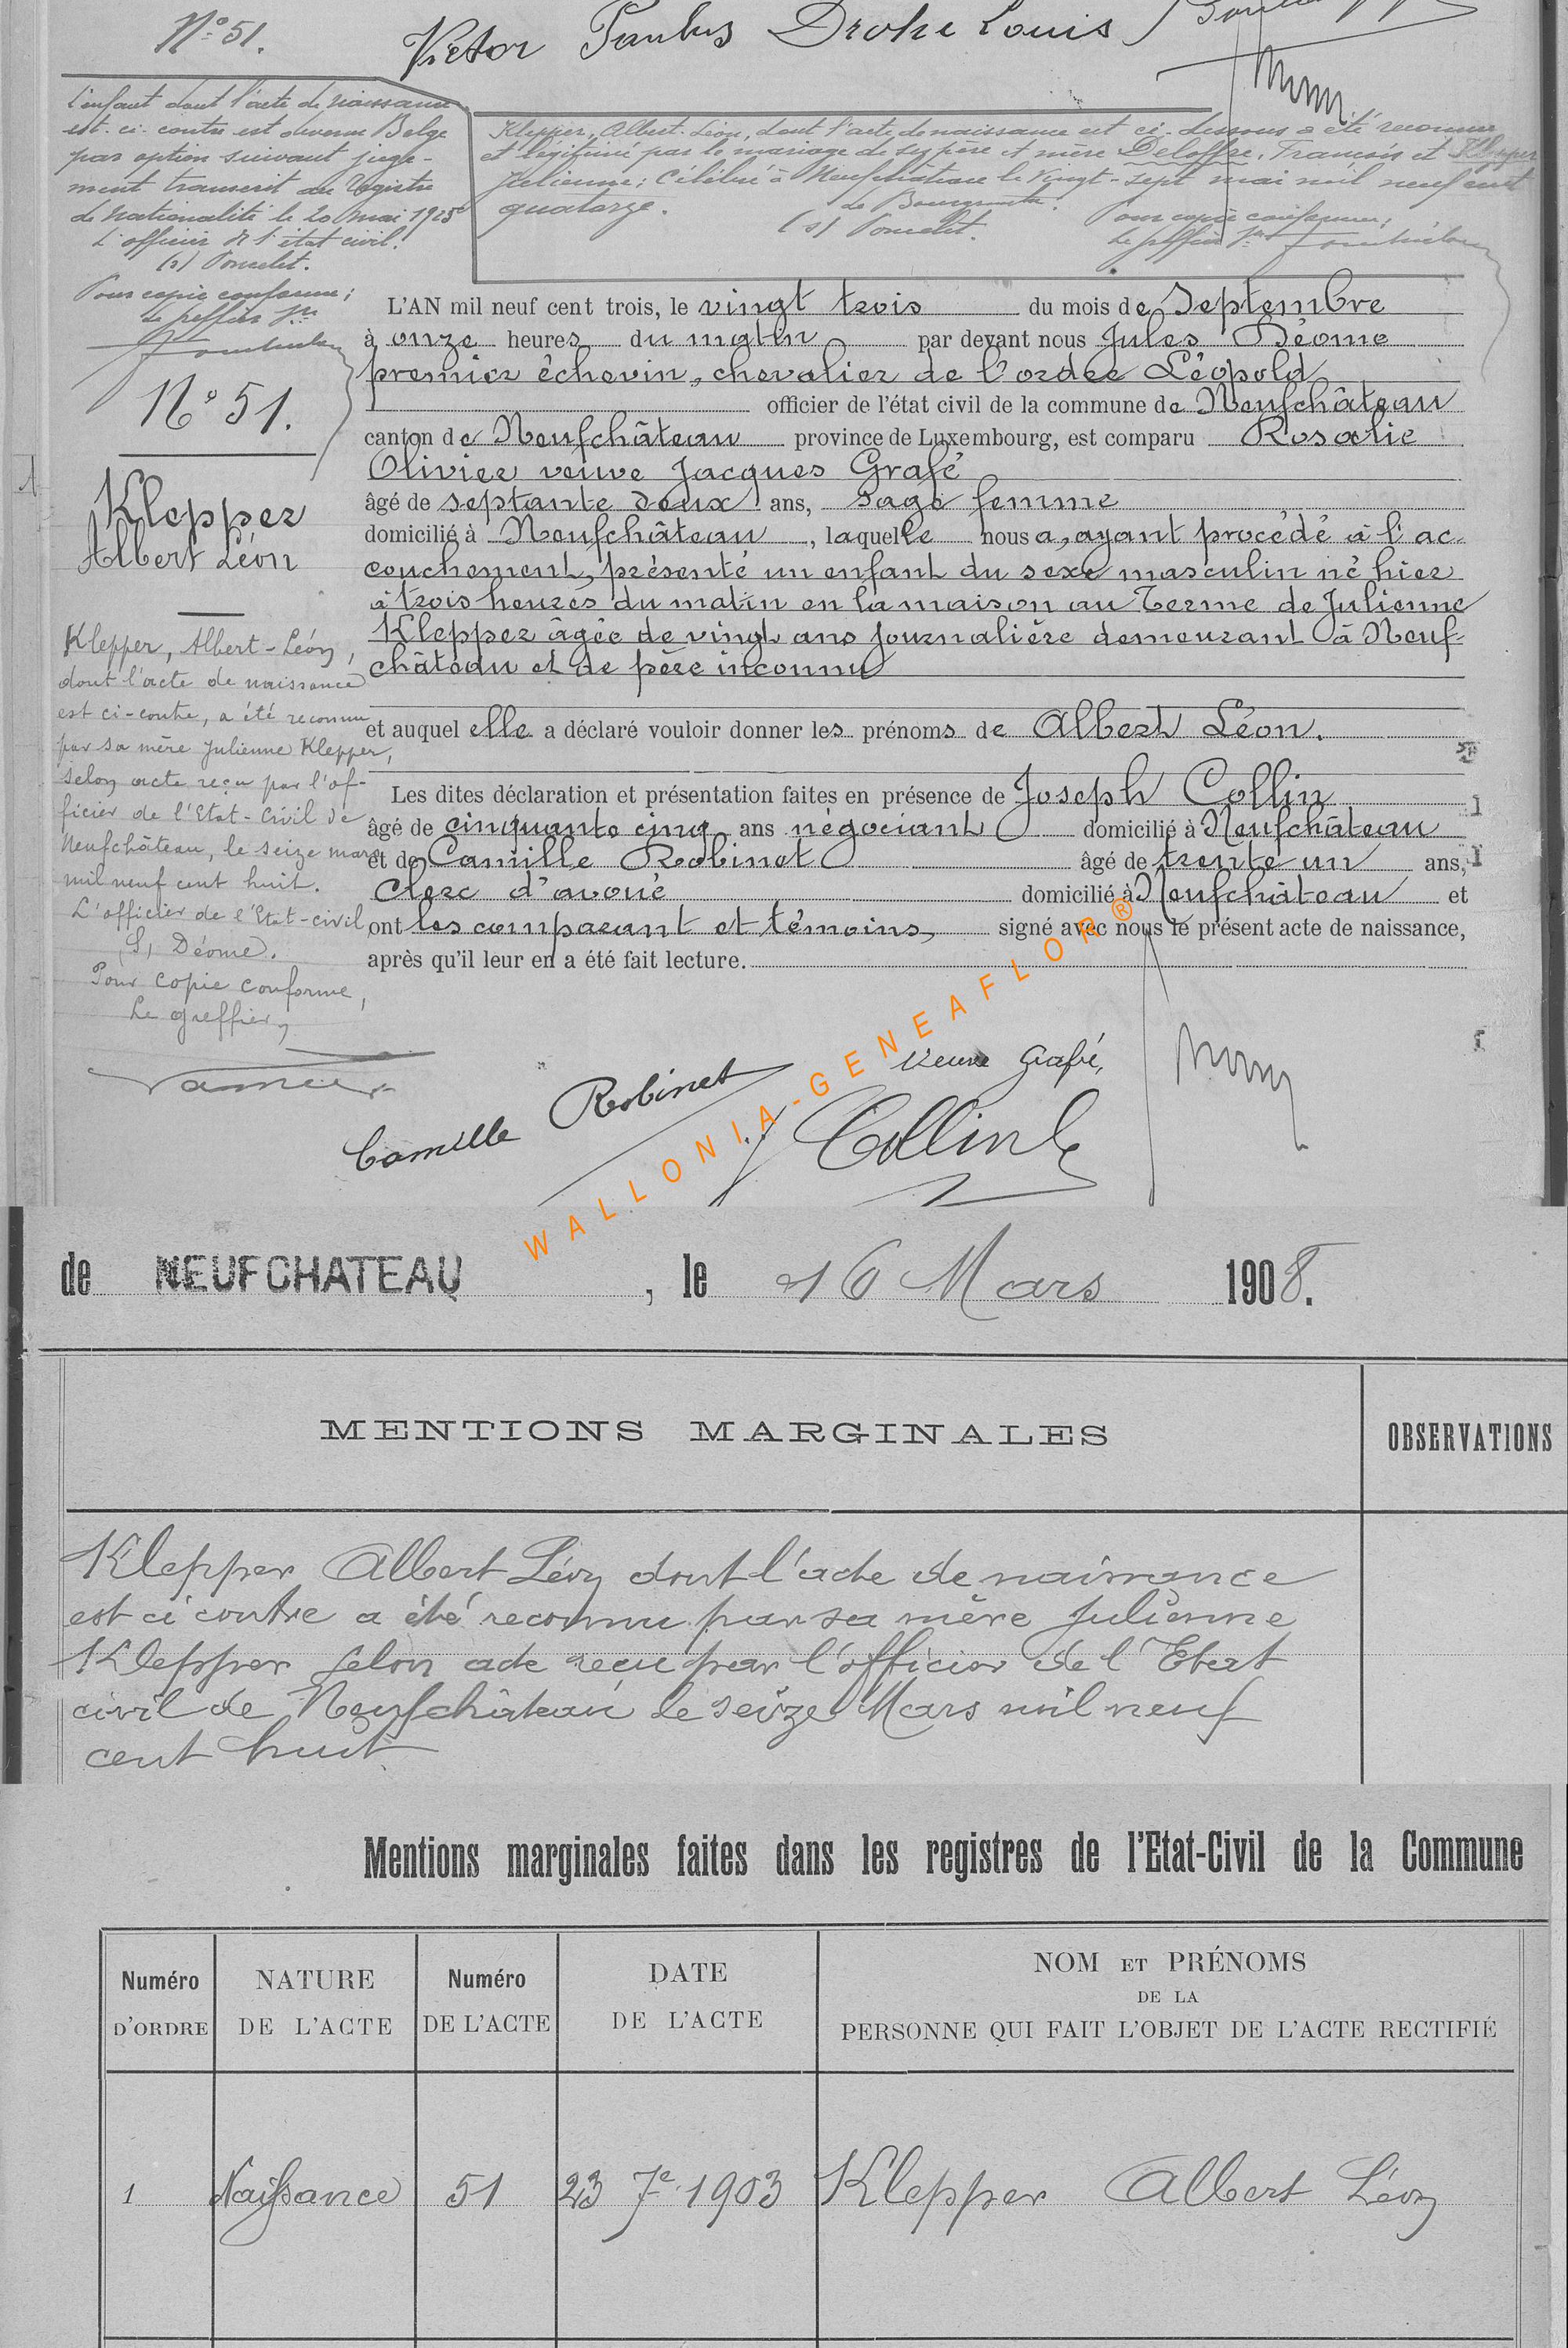 N° 51.
Victor Paulus Drohé Louis
L'enfant dont l'acte de naissance
est ci-contre est devenu Belge
par option suivant juge-
ment transcrit au Registre
de Nationalité le 20 mai 1925
L'officier de l'état civil.
(s) Poncelet.
Pour copie conforme;
Le greffier
Klepper, Albert-Léon, dont l'acte de naissance est ci-dessous a été reconnu
et légitimé par le mariage de ses père et mère Deloffre, François et Klepper
Julienne; Célébré à Neufchâteau le Vingt-sept mai mil neuf cent
quatorze.
Le Bourgmestre.
(s) Poncelet.
Pour copie conforme;
Le greffier
N° 51.
Klepper
Albert Léon
L'AN mil neuf cent trois, le vingt trois du mois de Septembre
à onze heures du matin par devant nous Jules Déome
premier échevin, chevalier de l'ordre Léopold
officier de l'état civil de la commune de Neufchâteau
canton de Neufchâteau province de Luxembourg, est comparu Rosalie
Olivier veuve Jacques Grafé
âgé de septante deux ans, sage femme
domicilié à Neufchâteau, laquelle nous a, ayant procédé à l'ac-
couchement, présenté un enfant du sexe masculin né hier
à trois heures du matin en la maison au Terme de Julienne
Klepper âgée de vingt ans journalière demeurant à Neuf-
château et de père inconnu
et auquel elle a déclaré vouloir donner les prénoms de Albert Léon.
Les dites déclaration et présentation faites en présence de Joseph Collin
âgé de cinquante cinq ans négociant domicilié à Neufchâteau
et de Camille Robinet âgé de trente un ans,
clerc d'avoué domicilié à Neufchâteau et
ont les comparant et témoins, signé avec nous le présent acte de naissance,
après qu'il leur en a été fait lecture.
Klepper, Albert-Léon,
dont l'acte de naissance
est ci-contre, a été reconnu
par sa mère Julienne Klepper,
selon acte reçu par l'of-
ficier de l'Etat-Civil de
Neufchâteau, le seize mars
mil neuf cent huit.
L'officier de l'Etat-civil
(S) Déome.
Pour copie conforme,
Le greffier,
Camille Robinet
Veuve Grafé,
Collin
WALLONIA-GENEAFLOR®
de NEUFCHATEAU, le 16 Mars 1908.
MENTIONS MARGINALES
OBSERVATIONS
Klepper Albert Léon dont l'acte de naissance
est ci contre a été reconnu par sa mère Julienne
Klepper selon acte reçu par l'officier de l'Etat
civil de Neufchâteau le seize Mars mil neuf
cent huit
Mentions marginales faites dans les registres de l'Etat-Civil de la Commune
Numéro D'ORDRE
NATURE DE L'ACTE
Numéro DE L'ACTE
DATE DE L'ACTE
NOM ET PRÉNOMS
DE LA
PERSONNE QUI FAIT L'OBJET DE L'ACTE RECTIFIÉ
1 Naissance 51 23 7e 1903 Klepper Albert Léon